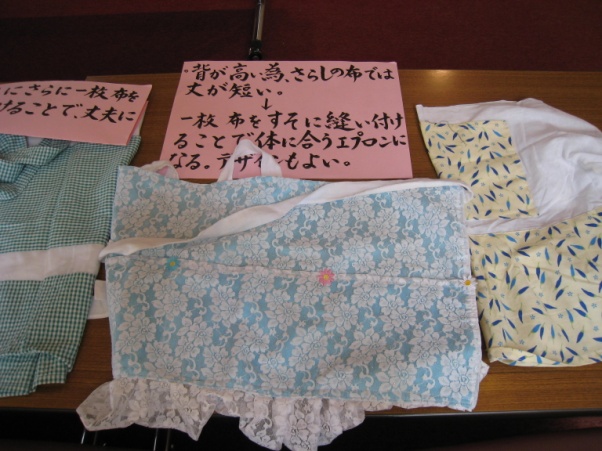 にさらに一枚布を
けることで、丈夫に
・背が高い為、さらしの布では
丈が短い。
↓
一枚布をすそに縫い付け
ることで体に合うエプロンに
なる。デザインもよい。